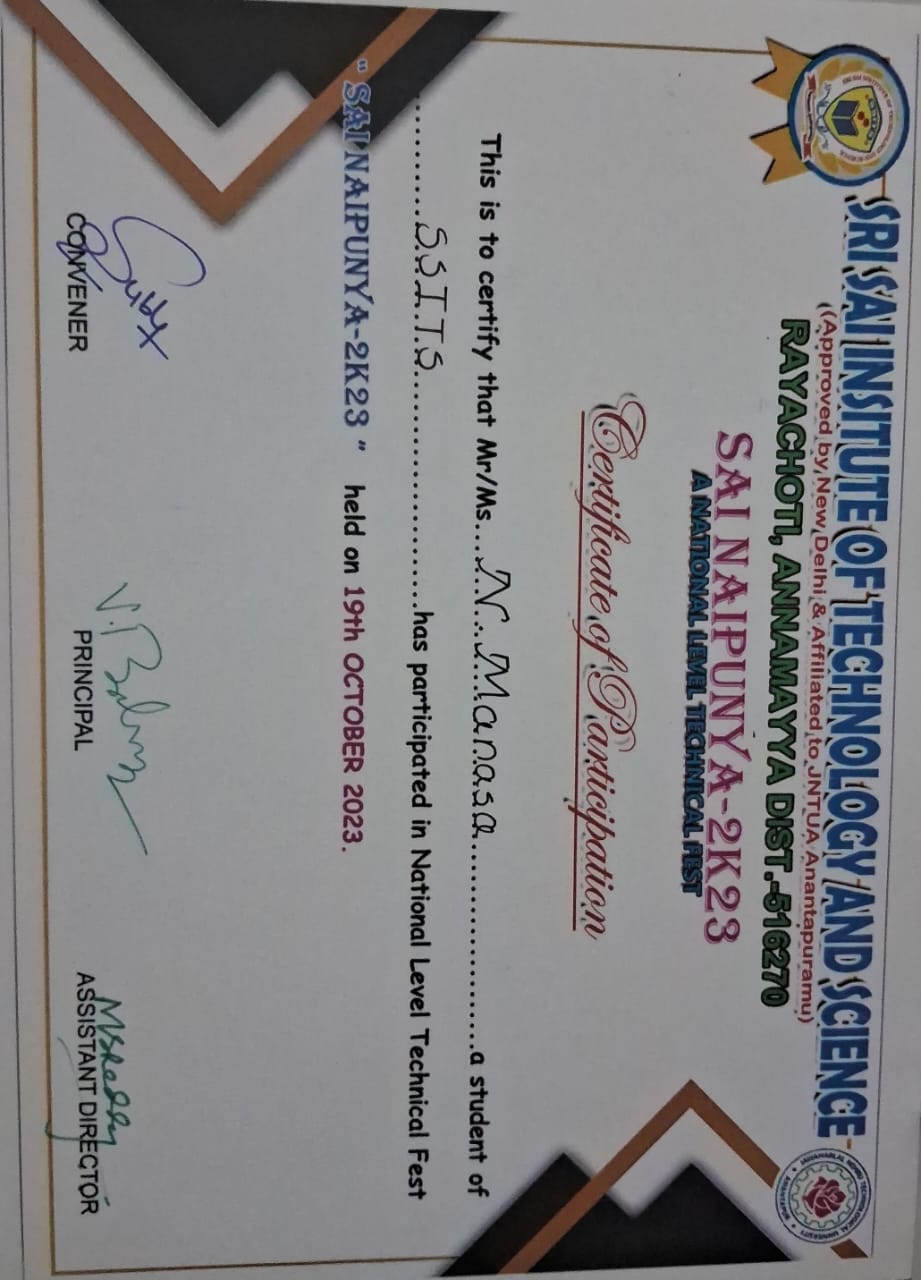 SRI SAI INSITUTE OF TECHNOLOGY AND SCIENCE
(Approved by New Delhi & Affiliated to JNTUA Anantapuramu)
RAYACHOTI, ANNAMAYYA DIST.-516270
SAI NAIPUNYA-2K23
A NATIONAL LEVEL TECHNICAL FEST
Certificate of Participation
This is to certify that Mr/Ms...N. Manasa.....................a student of
...........S.S.I.T.S........................has participated in National Level Technical Fest
" SAI NAIPUNYA-2K23 " held on 19th OCTOBER 2023.
MSReddy
CONVENER PRINCIPAL ASSISTANT DIRECTOR